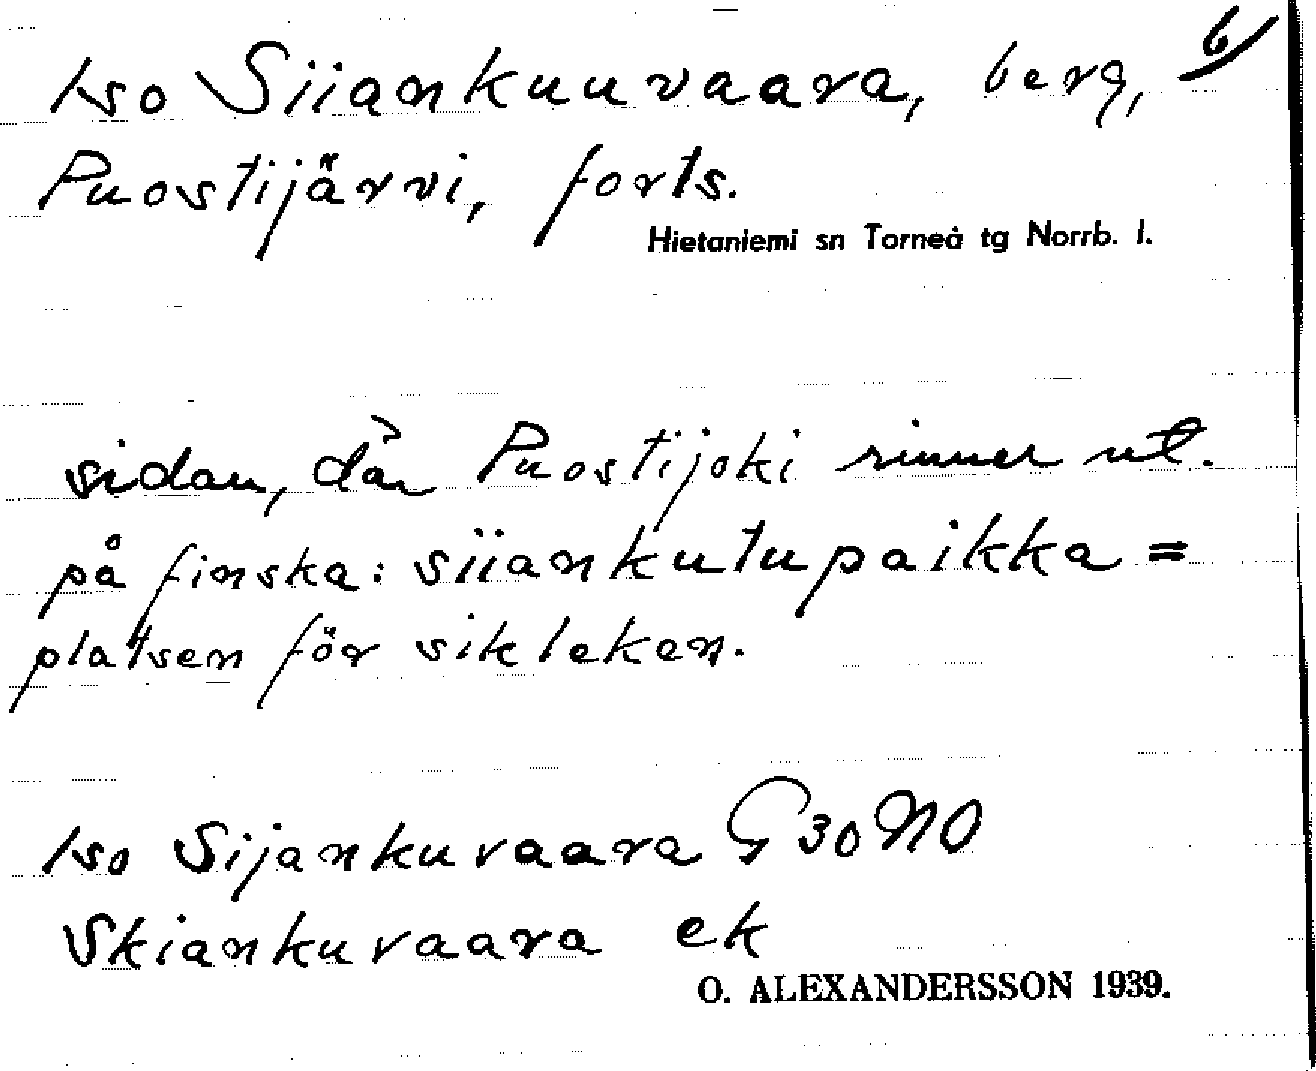 Iso Siiankuuvaara, berg, b/
Puostijärvi, forts.
Hietaniemi sn Torneå tg Norrb. l.
sidan, där Puostijoki rinner ut.
på finska: siiankutupaikka =
platsen för sikleken.
Iso Sijankuvaara G 30 NO
Skiankuvaara ek
O. ALEXANDERSSON 1939.